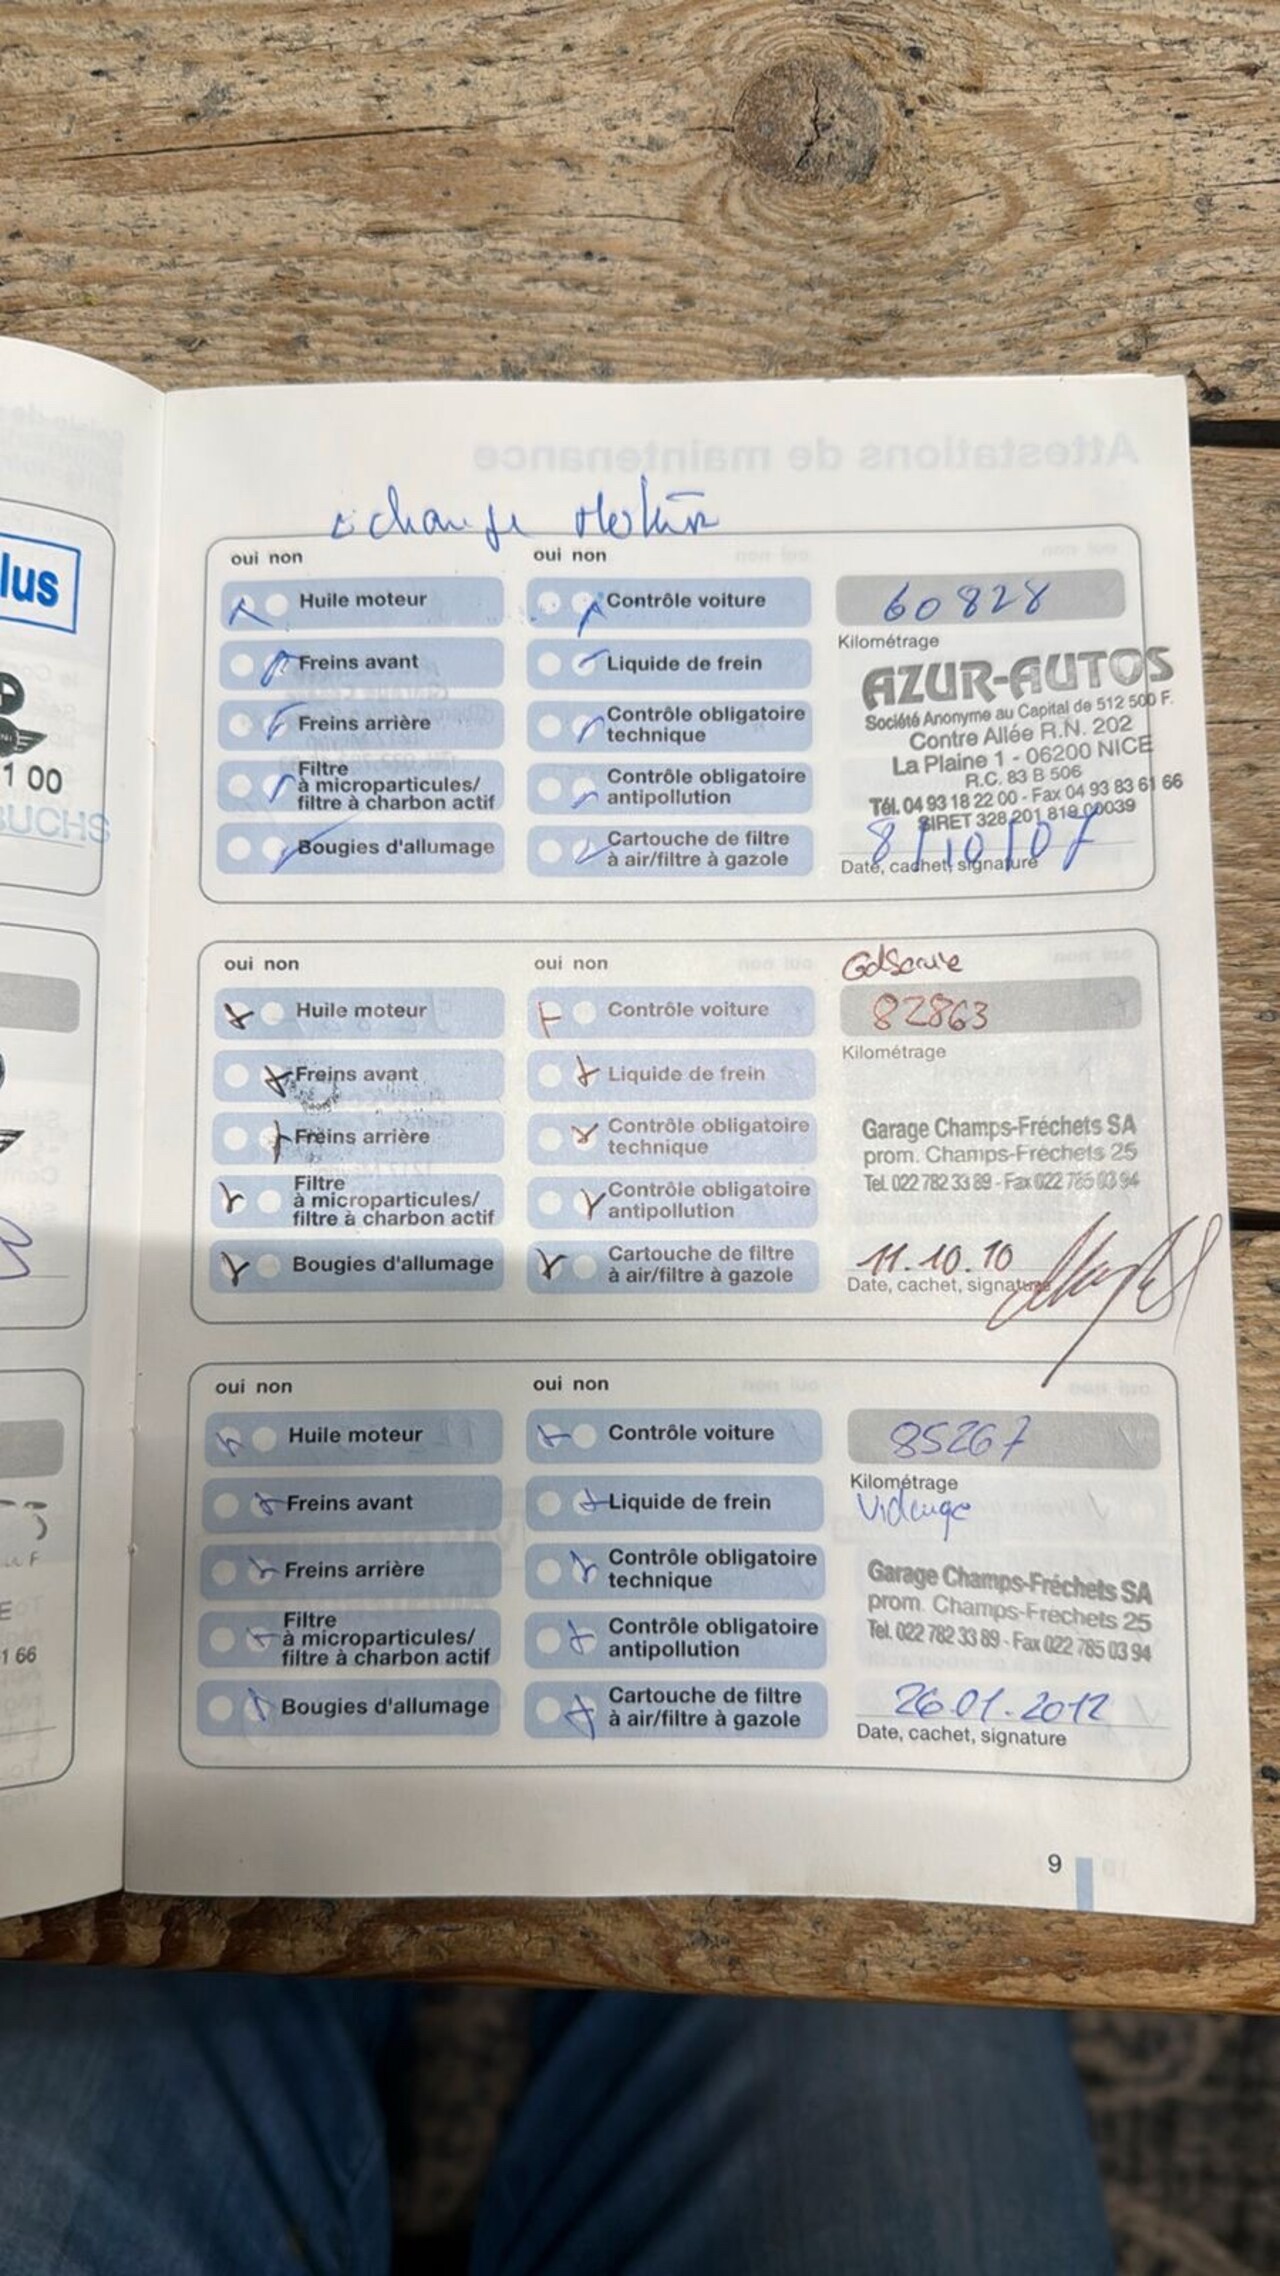 Attestations de maintenance
échange Moteur
oui non
oui non
Huile moteur
Contrôle voiture
60828
Kilométrage
Freins avant
Liquide de frein
Freins arrière
Contrôle obligatoire
technique
Filtre
à microparticules/
filtre à charbon actif
Contrôle obligatoire
antipollution
Bougies d'allumage
Cartouche de filtre
à air/filtre à gazole
AZUR-AUTOS
Société Anonyme au Capital de 512 500 F.
Contre Allée R.N. 202
La Plaine 1 - 06200 NICE
R.C. 83 B 506
Tél. 04 93 18 22 00 - Fax 04 93 83 61 66
SIRET 328 201 819 00039
8/10/07
Date, cachet, signature
oui non
oui non
GdService
Huile moteur
Contrôle voiture
82863
Kilométrage
Freins avant
Liquide de frein
Freins arrière
Contrôle obligatoire
technique
Filtre
à microparticules/
filtre à charbon actif
Contrôle obligatoire
antipollution
Bougies d'allumage
Cartouche de filtre
à air/filtre à gazole
Garage Champs-Fréchets SA
prom. Champs-Fréchets 25
Tel. 022 782 33 89 - Fax 022 785 03 94
11.10.10
Date, cachet, signature
oui non
oui non
Huile moteur
Contrôle voiture
85267
Kilométrage
Vidange
Freins avant
Liquide de frein
Freins arrière
Contrôle obligatoire
technique
Filtre
à microparticules/
filtre à charbon actif
Contrôle obligatoire
antipollution
Bougies d'allumage
Cartouche de filtre
à air/filtre à gazole
Garage Champs-Fréchets SA
prom. Champs-Fréchets 25
Tel. 022 782 33 89 - Fax 022 785 03 94
26.01.2012
Date, cachet, signature
9
lus
1 00
BUCHS
E
1 66